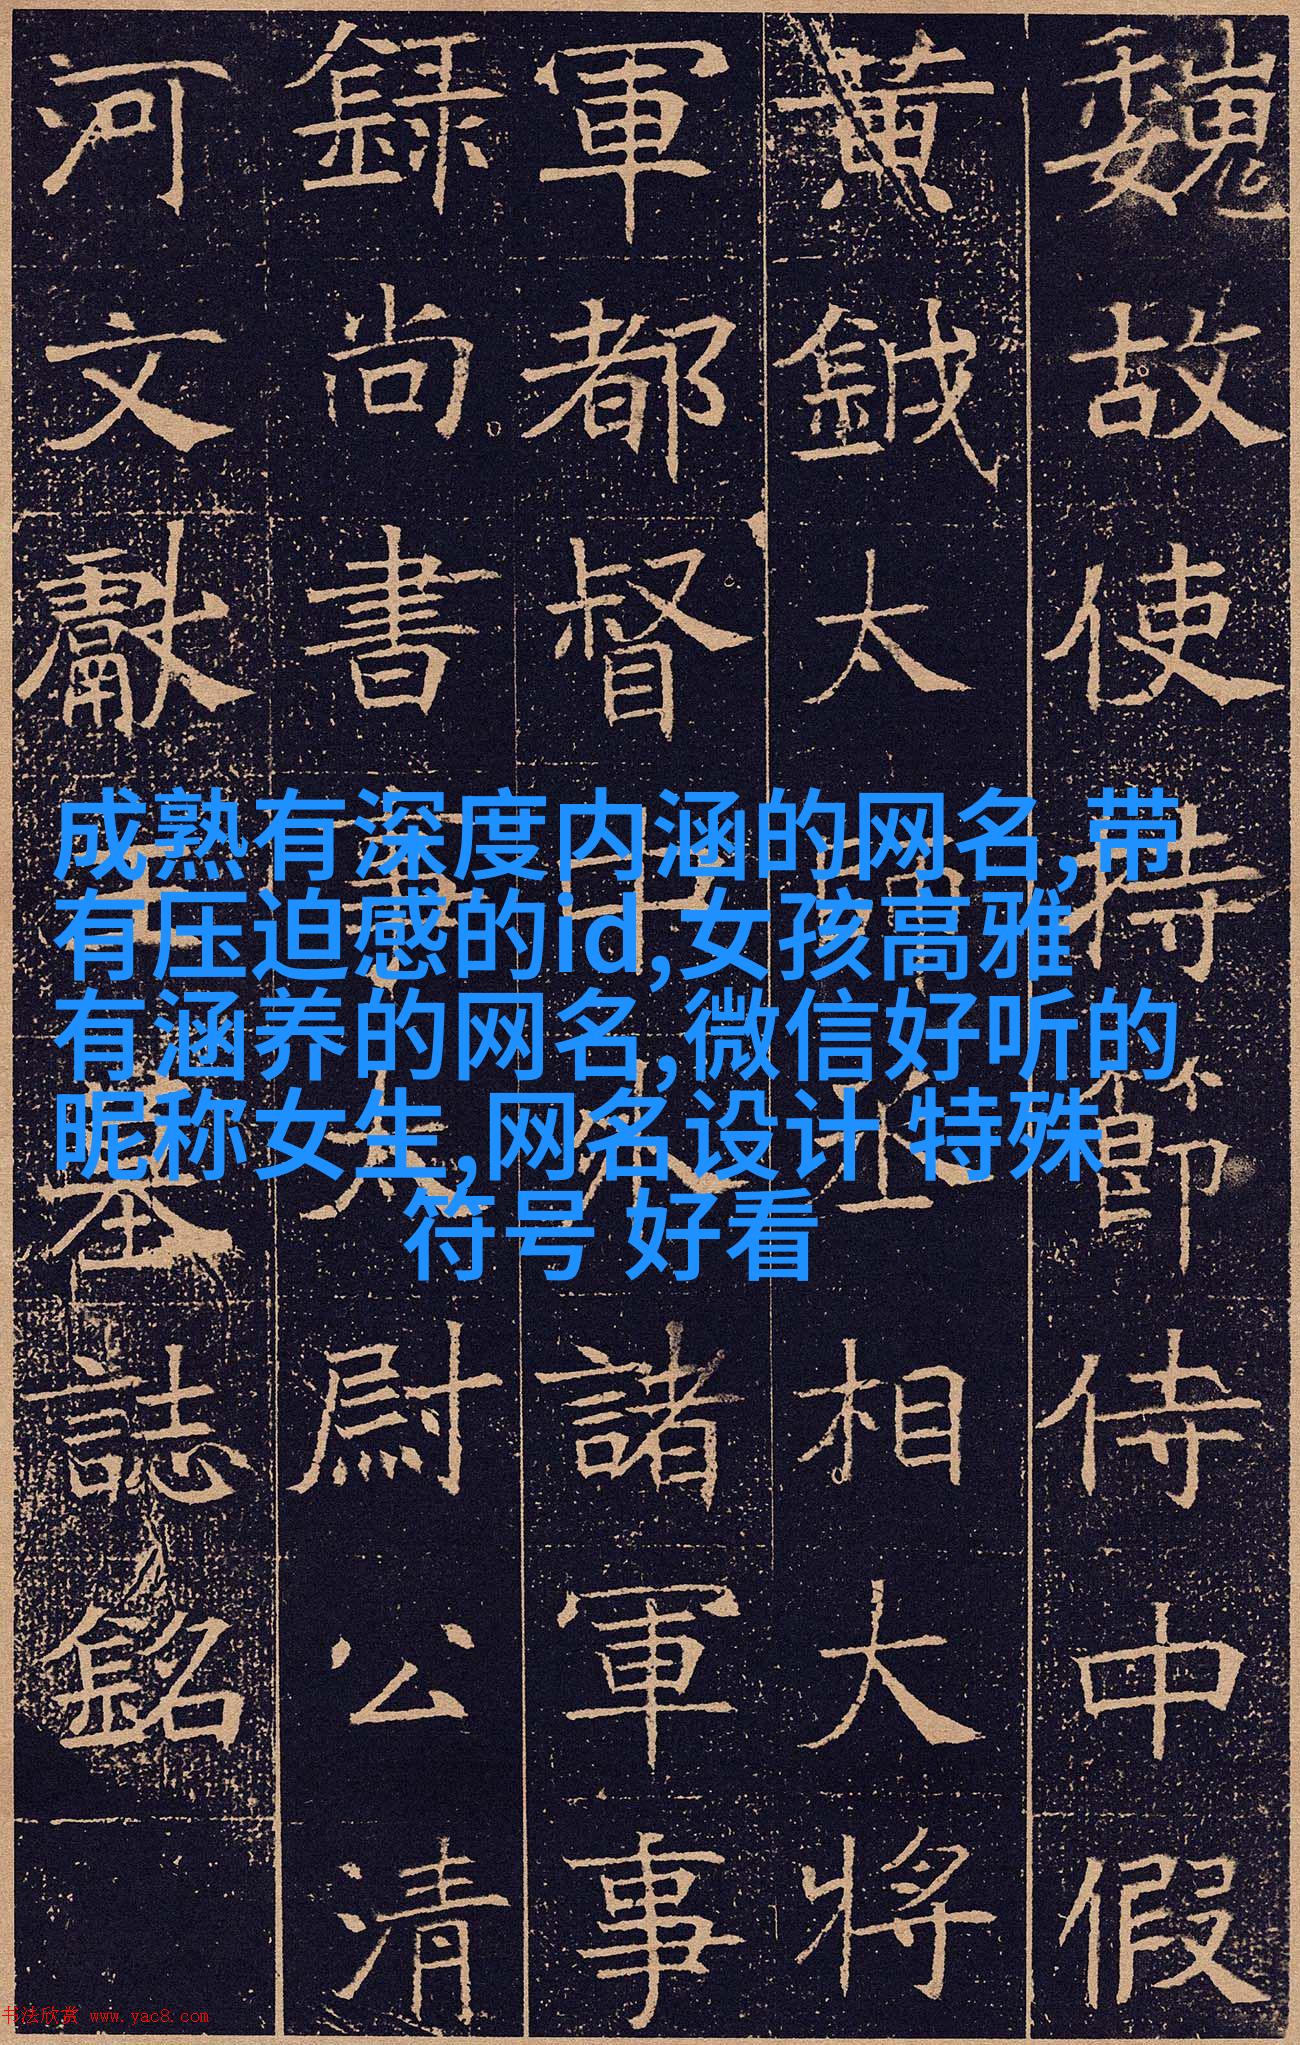 魏故使持節侍中假
黄鉞太丞相大將
軍都督中外諸軍事
録尚書事太尉公清
河文獻王墓誌銘
成熟有深度内涵的网名,带
有压迫感的id,女孩高雅
有涵养的网名,微信好听的
昵称女生,网名设计 特殊
符号 好看
书法欣赏 www.yac8.com